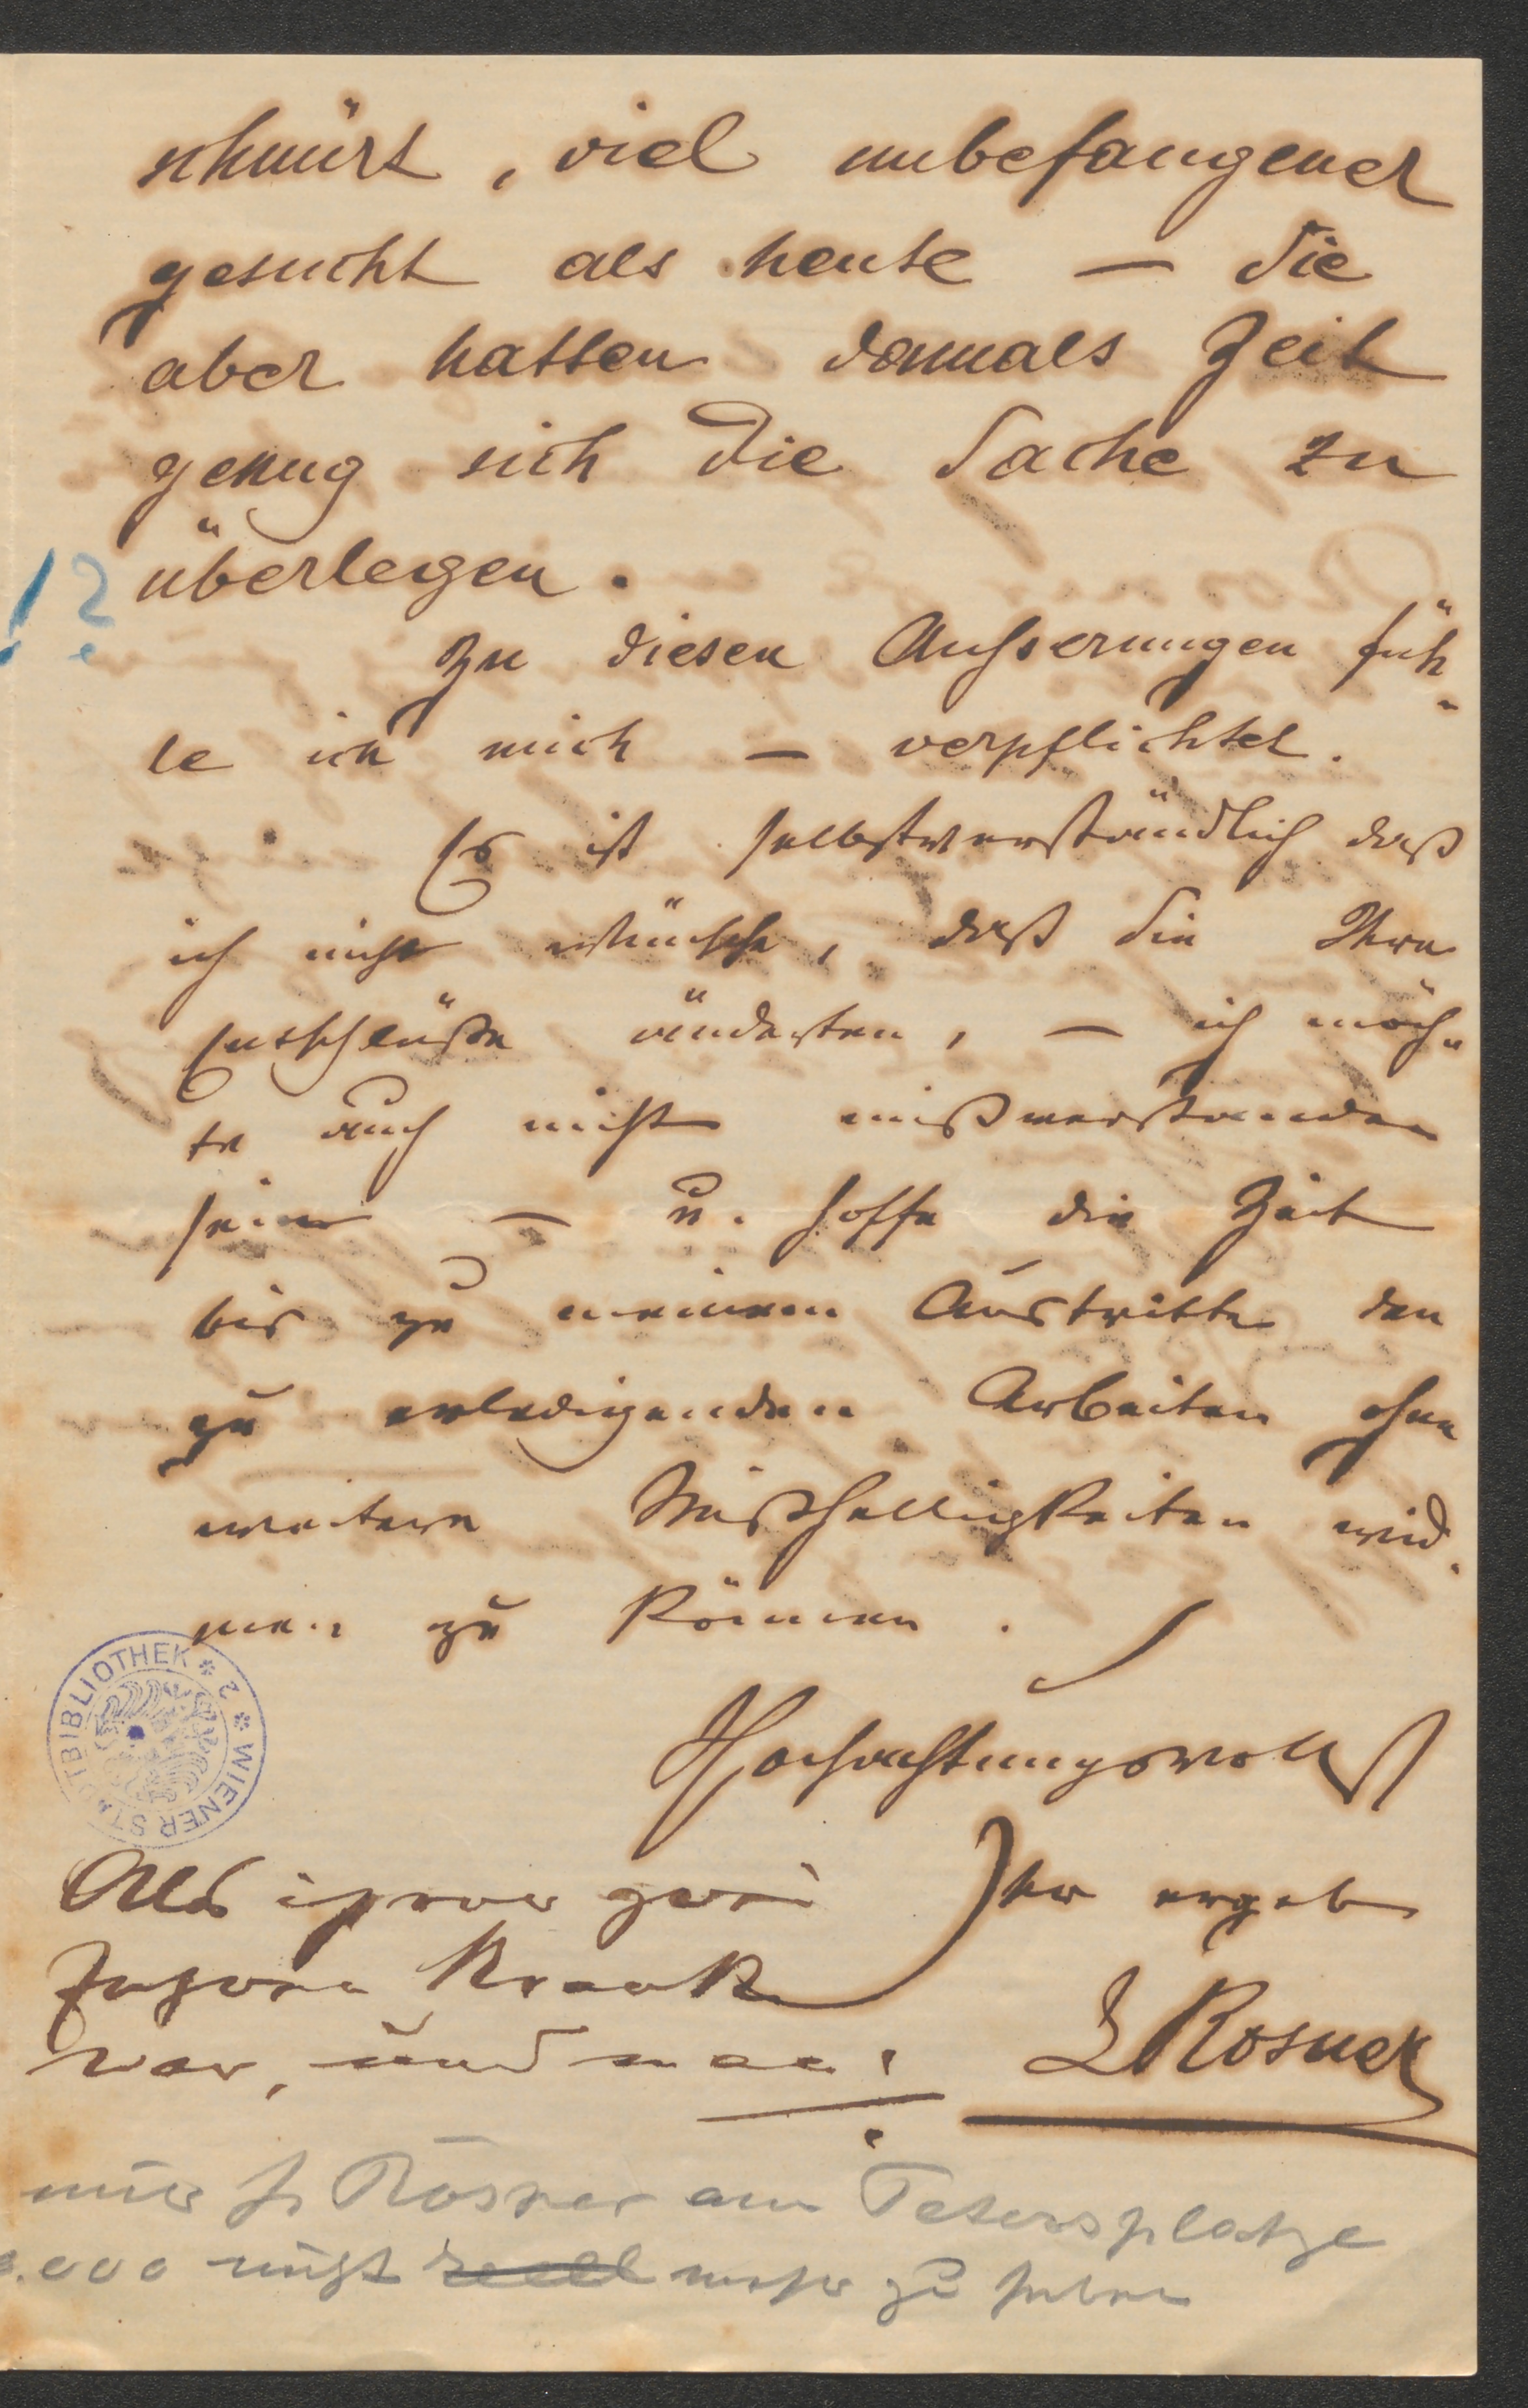 schnürt, viel unbefangener
gesucht als heute – Sie
aber hatten damals Zeit
genug sich die Sache zu
überlegen.
!?
Zu diesen Äußerungen füh-
le ich mich – verpflichtet.
Es ist selbstverständlich daß
ich nicht wünsche, daß Sie Ihre
Entschlüße änderten, – ich möch-
te auch nicht mißverstanden
sein – u. hoffe die Zeit
bis zu meinem Austritte den
zu erledigenden Arbeiten ohne
weitere Mißhelligkeiten wid-
men zu können.
Hochachtungsvollst
Ihr ergeb
L Rosner
Als ich vor zwei
Jahren krank
war, und man
mir Rosner am Petersplatze
000 nicht mehr zu haben
WIENER STADTBIBLIOTHEK